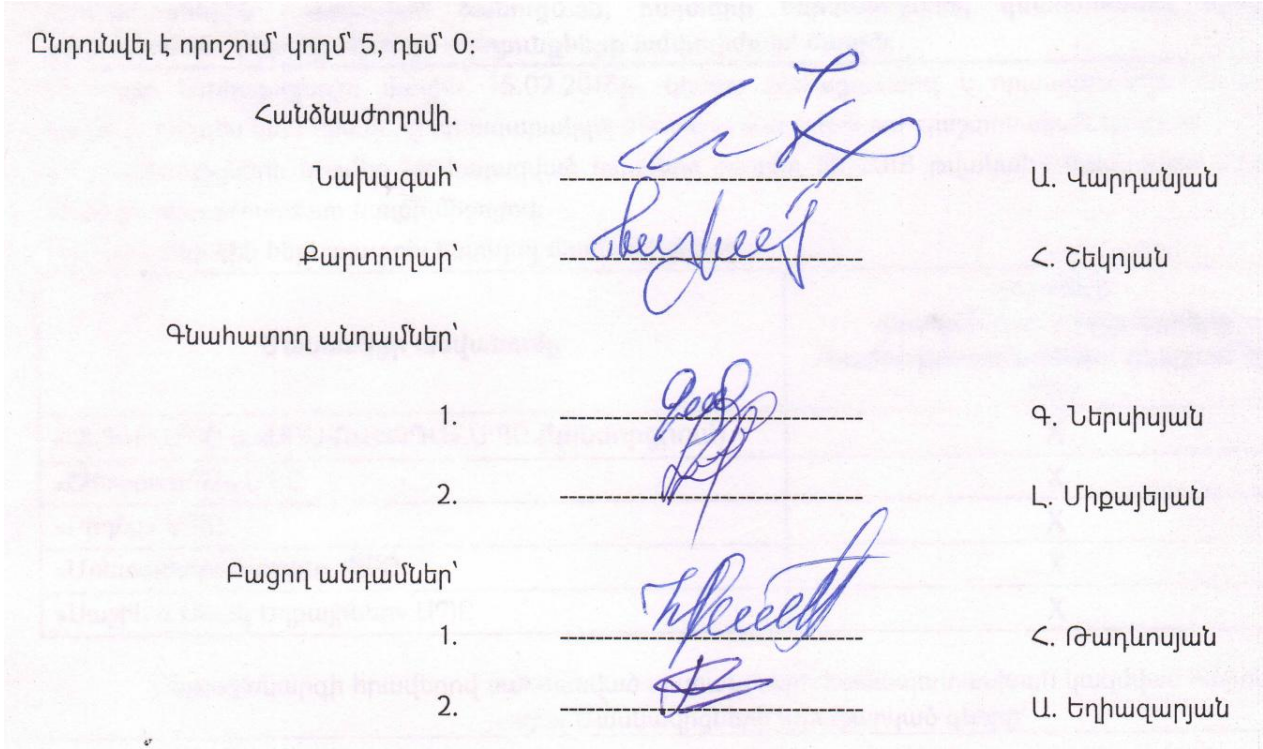 Ընդունվել է որոշում՝ կողմ՝ 5, դեմ՝ 0:
Հանձնաժողովի.
Նախագահ՝ Ա. Վարդանյան
Քարտուղար՝ Հ. Շեկոյան
Գնահատող անդամներ՝
1. Գ. Ներսիսյան
2. Լ. Միքայելյան
Բացող անդամներ՝
1. Հ. Թադևոսյան
2. Ա. Եղիազարյան